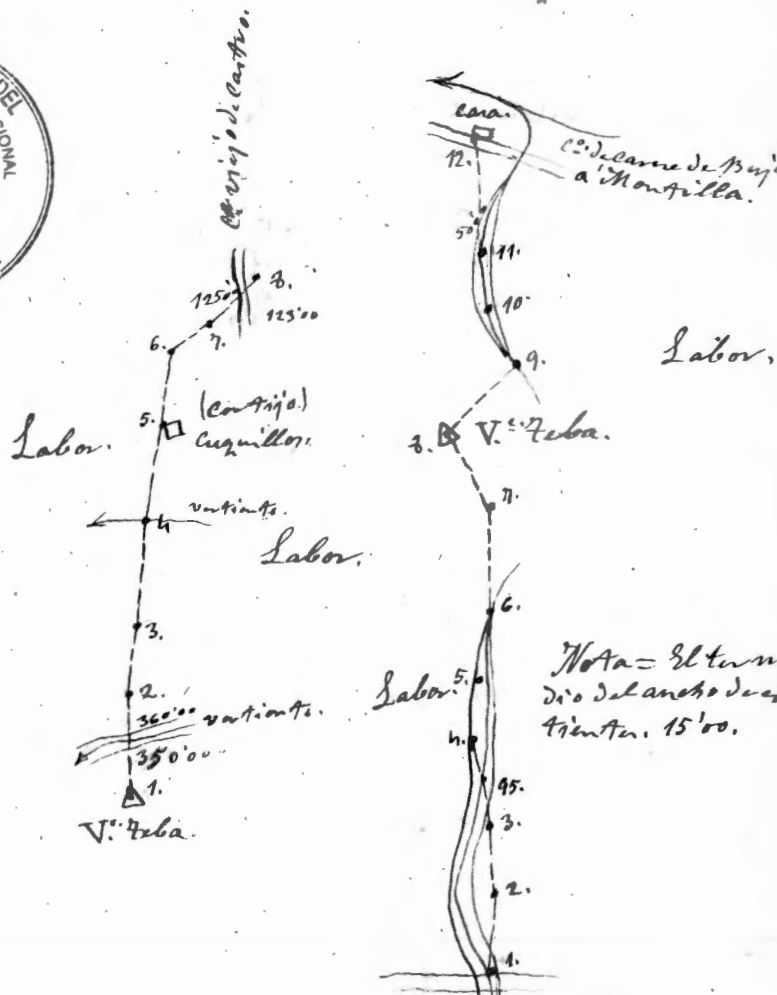 DEL
SIONAL
Cº viejo de Castro.
8.
125'
123'00
7.
6.
5.
(Cortijo)
Cuquillos.
Labor.
4
vertiente.
Labor.
3.
2.
360'00
vertiente.
350'00
1.
V.e Teba.
Casa.
12.
Cº de carne de Buj
a Montilla.
50'
11.
10.
9.
Labor.
8.
V.e Teba.
7.
6.
5.
Labor.
4.
95.
3.
2.
1.
Nota = El term
dio del ancho de
tientes. 15'00.